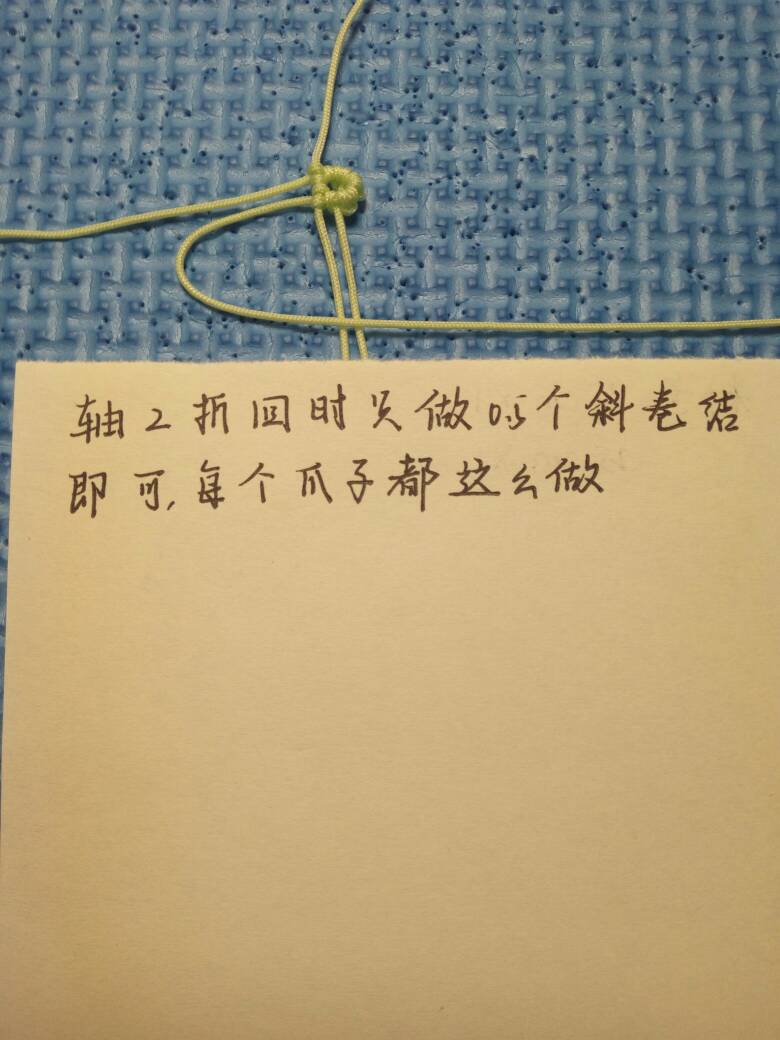 轴2折回时只做0.5个斜卷结
即可,每个爪子都这么做